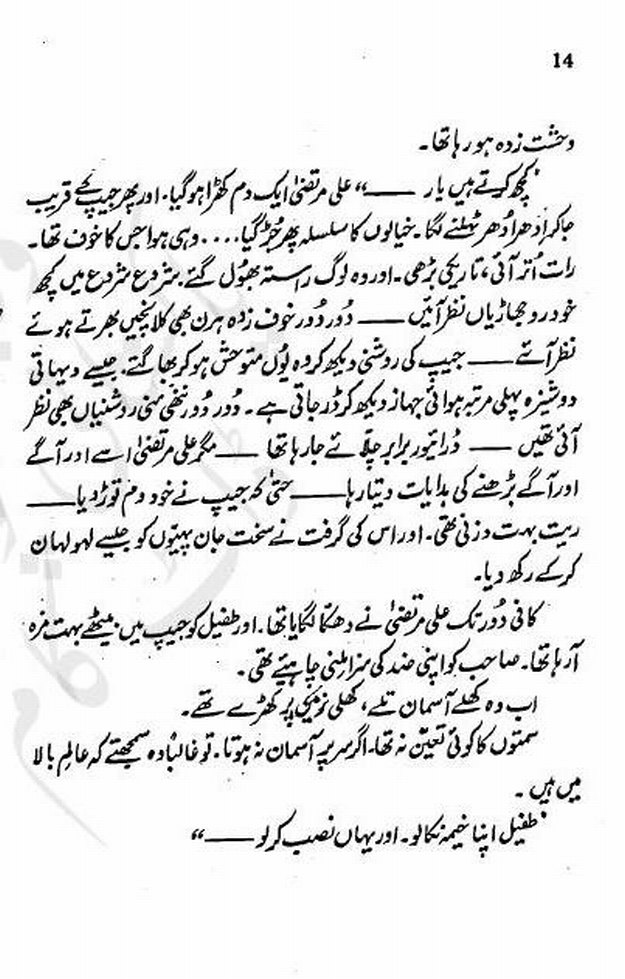 14
وحشت زدہ ہو رہا تھا۔
"کچھ کرتے ہیں یار ——" علی مرتضیٰ ایک دم کھڑا ہوگیا۔ اور پھر جیپ کے قریب
جاکر اِدھر اُدھر ٹہلنے لگا۔ خیالوں کا سلسلہ پھر جُڑ گیا.... وہی ہوا جس کا خوف تھا۔
رات اُتر آئی، تاریکی بڑھی۔ اور وہ لوگ راستہ بھُول گئے۔ شروع شروع میں کچھ
خودرو جھاڑیاں نظر آئیں —— دُور دُور خوف زدہ ہرن بھی کلانچیں بھرتے ہوئے
نظر آئے —— جیپ کی روشنی دیکھ کر وہ یُوں متوحش ہو کر بھاگتے۔ جیسے دیہاتی
دوشیزہ پہلی مرتبہ ہوائی جہاز دیکھ کر ڈر جاتی ہے۔ دُور دُور ننھی ننھی روشنیاں بھی نظر
آئی تھیں —— ڈرائیور برابر چلائے جا رہا تھا —— مگر علی مرتضیٰ اسے اور آگے
اور آگے بڑھنے کی ہدایات دیتا رہا —— حتیٰ کہ جیپ نے خود دم توڑ دیا ——
ریت بہت وزنی تھی۔ اور اس کی گرفت نے سخت جان پہیّوں کو جیسے لہولہان
کر کے رکھ دیا۔
کافی دُور تک علی مرتضیٰ نے دھکّا لگایا تھا۔ اور طفیل کو جیپ میں بیٹھے بہت مزہ
آ رہا تھا۔ صاحب کو اپنی ضد کی سزا ملنی چاہیئے تھی۔
اب وہ کھلے آسمان تلے، کھلی زمین پر کھڑے تھے۔
سمتوں کا کوئی تعیّن نہ تھا۔ اگر سر پہ آسمان نہ ہوتا۔ تو غالباً وہ سمجھتے کہ عالمِ بالا
میں ہیں۔
"طفیل اپنا خیمہ نکالو۔ اور یہاں نصب کر لو ——"